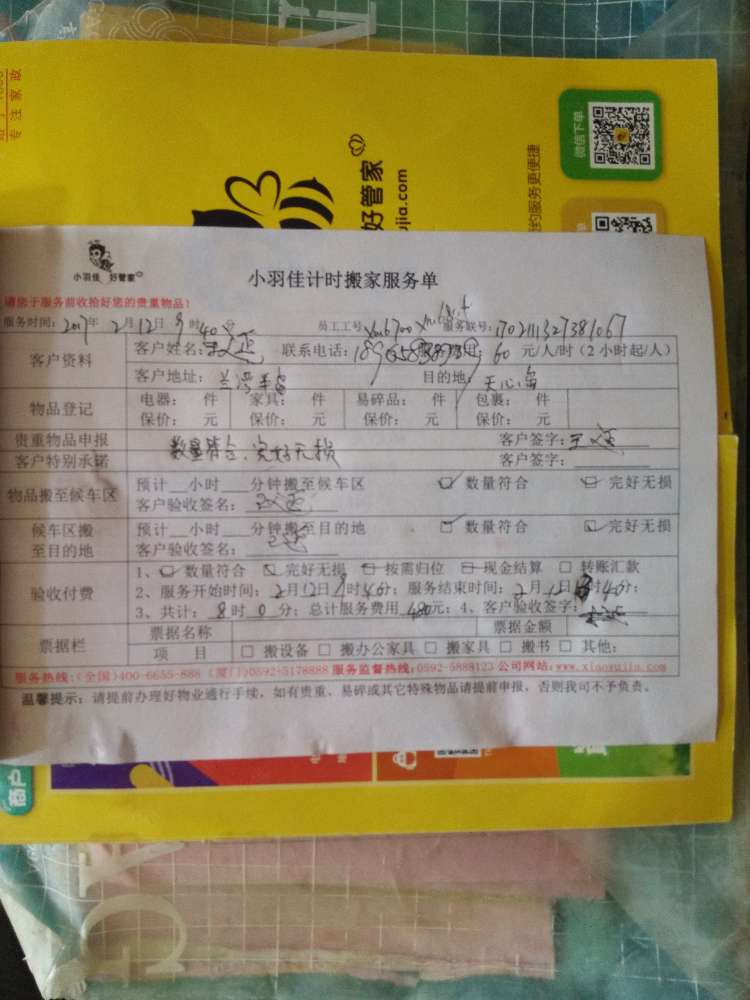 专注家政
好管家
ujia.com
微信下单
约服务更便捷
小羽佳 好管家
小羽佳计时搬家服务单
请您于服务前收拾好您的贵重物品!
服务时间: 2017年 2月12日 8时40分 员工工号: xm6700 服务联号: 1702111327381067
客户资料 客户姓名: 联系电话: 60 元/人/时(2小时起/人)
客户地址: 目的地: 天心岛
物品登记 电器: 件 家具: 件 易碎品: 件 包裹: 件
保价: 元 保价: 元 保价: 元 保价: 元
贵重物品申报 数量符合、完好无损 客户签字:
客户特别承诺 客户签字:
物品搬至候车区 预计__小时__分钟搬至候车区 数量符合 完好无损
客户验收签名:
候车区搬至目的地 预计__小时__分钟搬至目的地 数量符合 完好无损
客户验收签名:
验收付费 1、数量符合 完好无损 按需归位 现金结算 转账汇款
2、服务开始时间: 2月12日8时40分; 服务结束时间: 2月12日 时40分;
3、共计: 8时0分; 总计服务费用480元; 4、客户验收签字:
票据栏 票据名称 票据金额
项 目 搬设备 搬办公家具 搬家具 搬书 其他:
服务热线:(全国)400-6655-888 (厦门)0592-5178888 服务监督热线:0592-5888123 公司网站:www.xiaoyujia.com
温馨提示: 请提前办理好物业通行手续, 如有贵重、易碎或其它特殊物品请提前申报, 否则我司不予负责。
商户